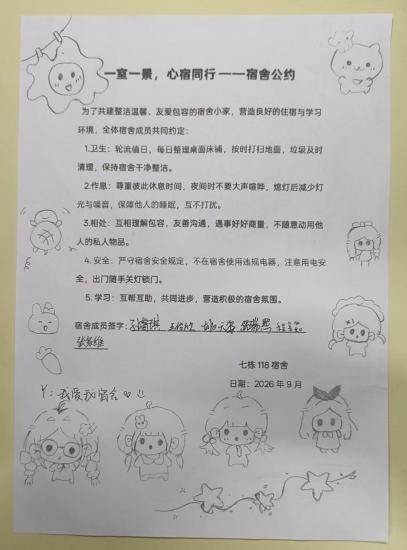 一室一景，心宿同行——宿舍公约
为了共建整洁温馨、友爱包容的宿舍小家，营造良好的住宿与学习
环境，全体宿舍成员共同约定：
1.卫生：轮流值日，每日整理桌面床铺，按时打扫地面，垃圾及时
清理，保持宿舍干净整洁。
2.作息：尊重彼此休息时间，夜间时不要大声喧哗，熄灯后减少灯
光与噪音，保障他人的睡眠，互不打扰。
3.相处：互相理解包容，友善沟通，遇事好好商量，不随意动用他
人的私人物品。
4.安全：严守宿舍安全规定，不在宿舍使用违规电器，注意用电安
全，出门随手关灯锁门。
5.学习：互帮互助，共同进步，营造积极的宿舍氛围。
宿舍成员签字：
七栋 118 宿舍
日期：2026 年 9 月
Y：我爱我宿舍